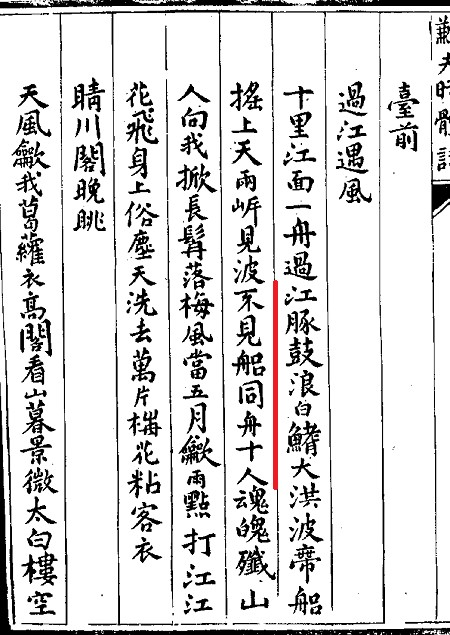 臺前
過江遇風
十里江面一舟過江豚鼓浪白鰭大洪波帶船
搖上天兩岸見波不見船同舟十人魂魄殲山
人向我掀長髯落梅風當五月龡雨點打江江
花飛身上俗塵天洗去萬片梅花粘客衣
晴川閣晚眺
天風龡我葛蘿衣高閣看山暮景微太白樓空